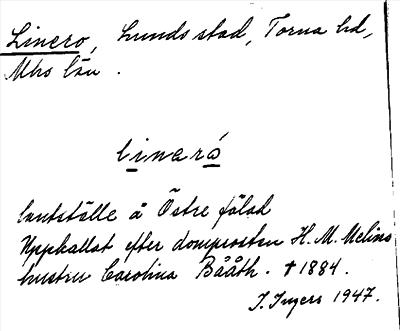 Linero, Lunds stad, Torna hd,
Mhs län.
lineró
lantställe å Östre fälad
Uppkallat efter domprosten H. M. Melins
hustru Carolina Bååth. † 1884.
I. Ingers 1947.